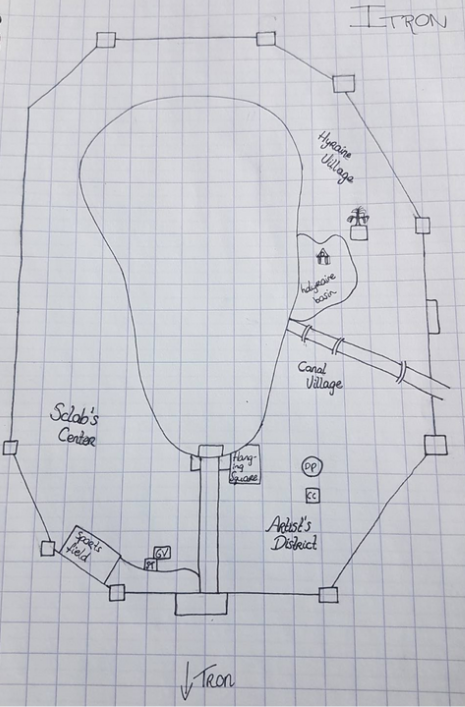 ITRON
Hyraine
Village
holyraine
basin
Canal
Village
Sclab's
Center
Hang-
ing
Square
PP
CC
Artist's
District
Sports
field
GV
↓ TRON